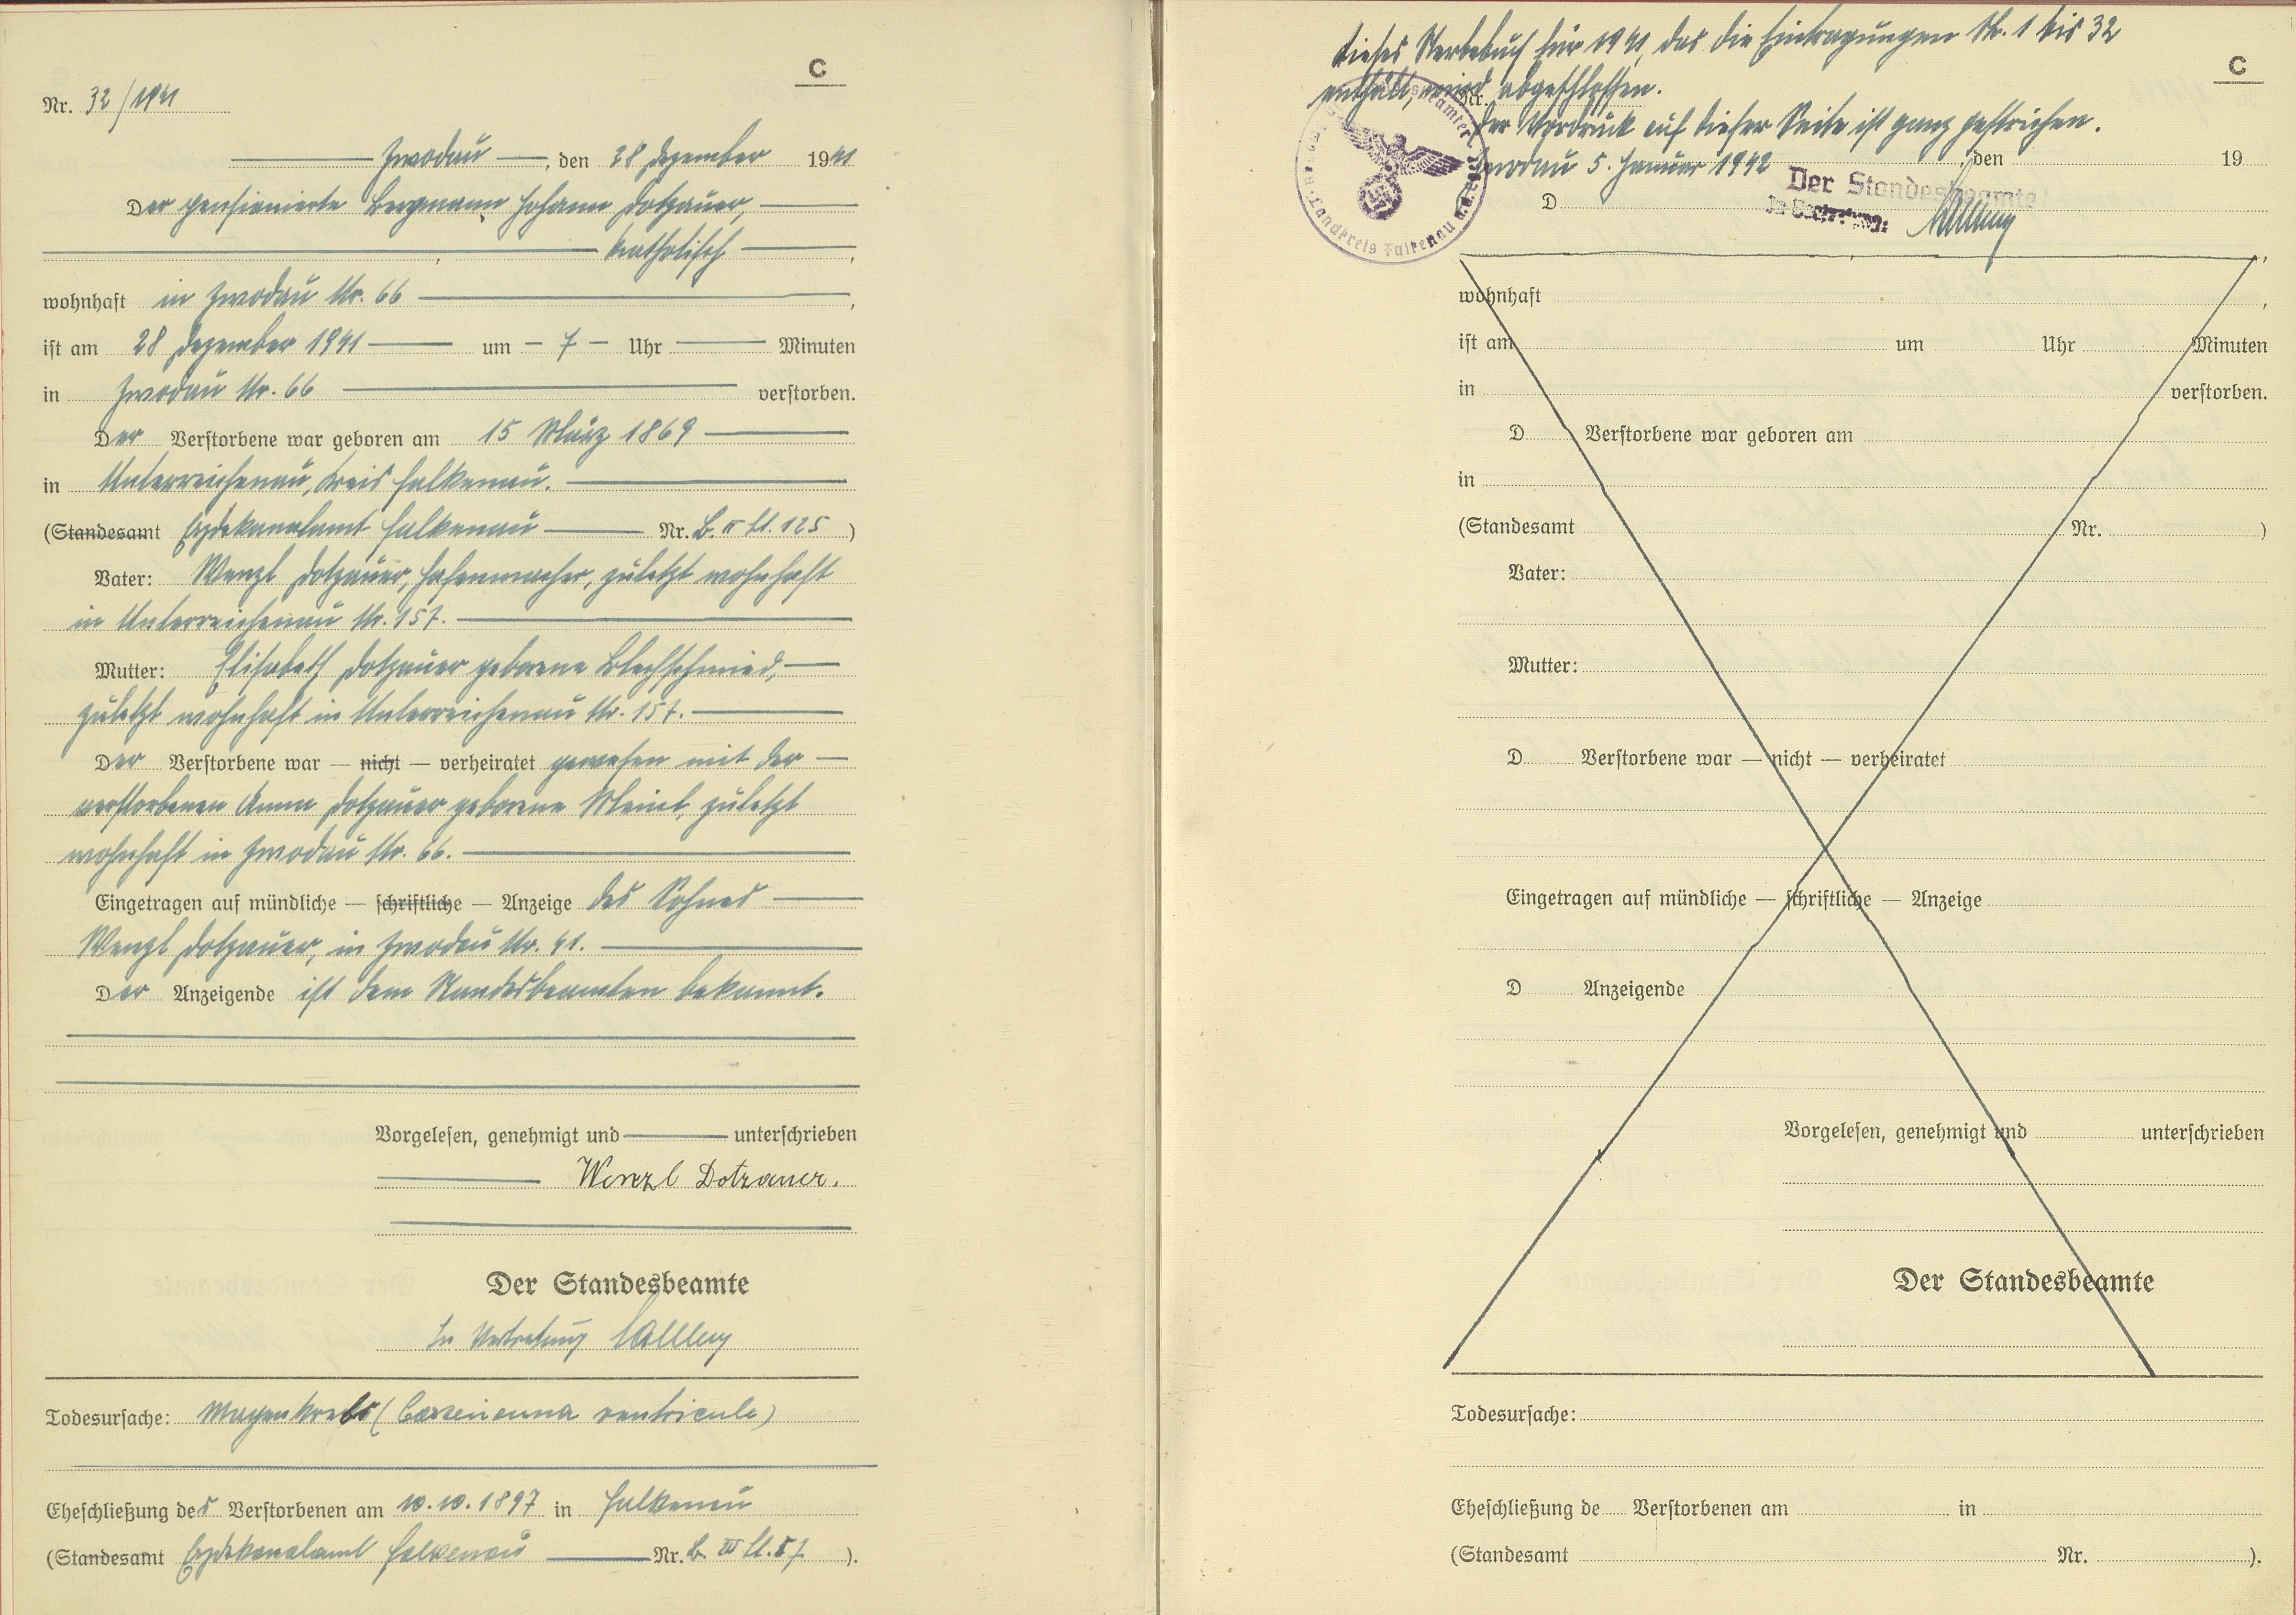 C
Nr. 32/1941
Zwodau, den 28 Dezember 1941
Der pensionierte Bergmann Johann Dotzauer,
katholisch,
wohnhaft in Zwodau Nr. 66,
ist am 28 Dezember 1941 um - 7 - Uhr Minuten
in Zwodau Nr. 66 verstorben.
Der Verstorbene war geboren am 15 März 1869
in Unterreichenau, Kreis Falkenau.
(Standesamt Erzdekanalamt Falkenau Nr. B. II Bl. 125)
Vater: Wenzl Dotzauer, zuletzt wohnhaft
in Unterreichenau Nr. 157.
Mutter: Elisabeth Dotzauer geborene Blechschmied,
zuletzt wohnhaft in Unterreichenau Nr. 157.
Der Verstorbene war — nicht — verheiratet gewesen mit der
verstorbenen Anna Dotzauer geborene Meinl, zuletzt
wohnhaft in Zwodau Nr. 66.
Eingetragen auf mündliche — schriftliche — Anzeige des Sohnes
Wenzl Dotzauer, in Zwodau Nr. 41.
Der Anzeigende ist dem Standesbeamten bekannt.
Vorgelesen, genehmigt und unterschrieben
Wenzl Dotzauer.
Der Standesbeamte
In Vertretung
Todesursache: Magenkrebs (Carzinoma ventriculi)
Eheschließung des Verstorbenen am 10.10.1897 in Falkenau
(Standesamt Erzdekanalamt Falkenau Nr. B. III Bl. 57).
Dieses Sterbebuch für 1941, das die Eintragungen Nr. 1 bis 32
C
enthält, wird abgeschlossen.
Nr.
Der Vordruck auf dieser Seite ist ganz gestrichen.
Zwodau 5. Januar 1942, den 19
Der Standesbeamte
In Vertretung:
Landkreis Falkenau
D
wohnhaft,
ist am um Uhr Minuten
in verstorben.
D Verstorbene war geboren am
in
(Standesamt Nr. )
Vater:
Mutter:
D Verstorbene war — nicht — verheiratet
Eingetragen auf mündliche — schriftliche — Anzeige
D Anzeigende
Vorgelesen, genehmigt und unterschrieben
Der Standesbeamte
Todesursache:
Eheschließung de Verstorbenen am in
(Standesamt Nr. ).